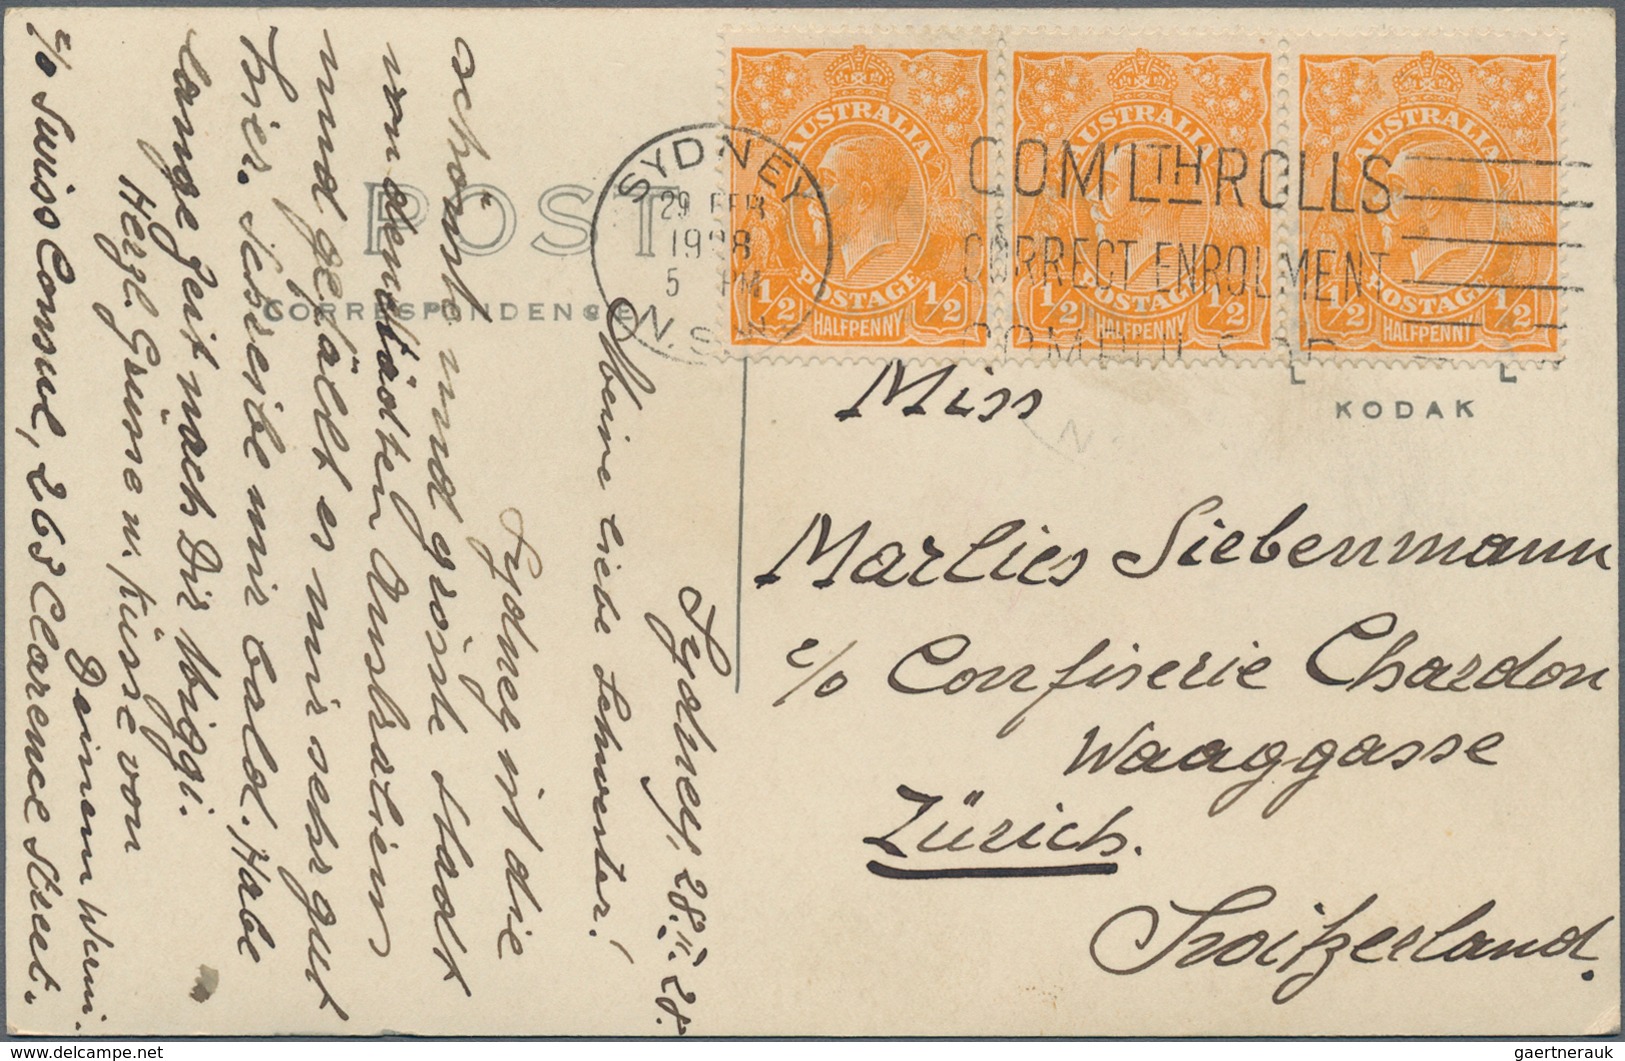 Sydney, 28.II.28.
Meine liebe Schwester!
Sydney ist die
schönste und grösste Stadt
von den Städten Australien
und gefällt es mir sehr gut
hier. Schreibe mir bald. Habe
lange Zeit nach Dir Miggi.
Herzl. Grüsse u. Küsse von
Deinem Werni.
c/o Swiss Consul, 263 Clarence Street.
POST
CORRESPONDENCE
AUSTRALIA
POSTAGE
½ ½
HALFPENNY
AUSTRALIA
POSTAGE
½ ½
HALFPENNY
AUSTRALIA
POSTAGE
½ ½
HALFPENNY
SYDNEY
29 FEB
1928
5 PM
N.S.W.
COM'LTH ROLLS
CORRECT ENROLMENT
KODAK
Miss
Marlies Siebenmann
c/o Confiserie Chardon
Waaggasse
Zürich.
Switzerland.
gaertnerauk